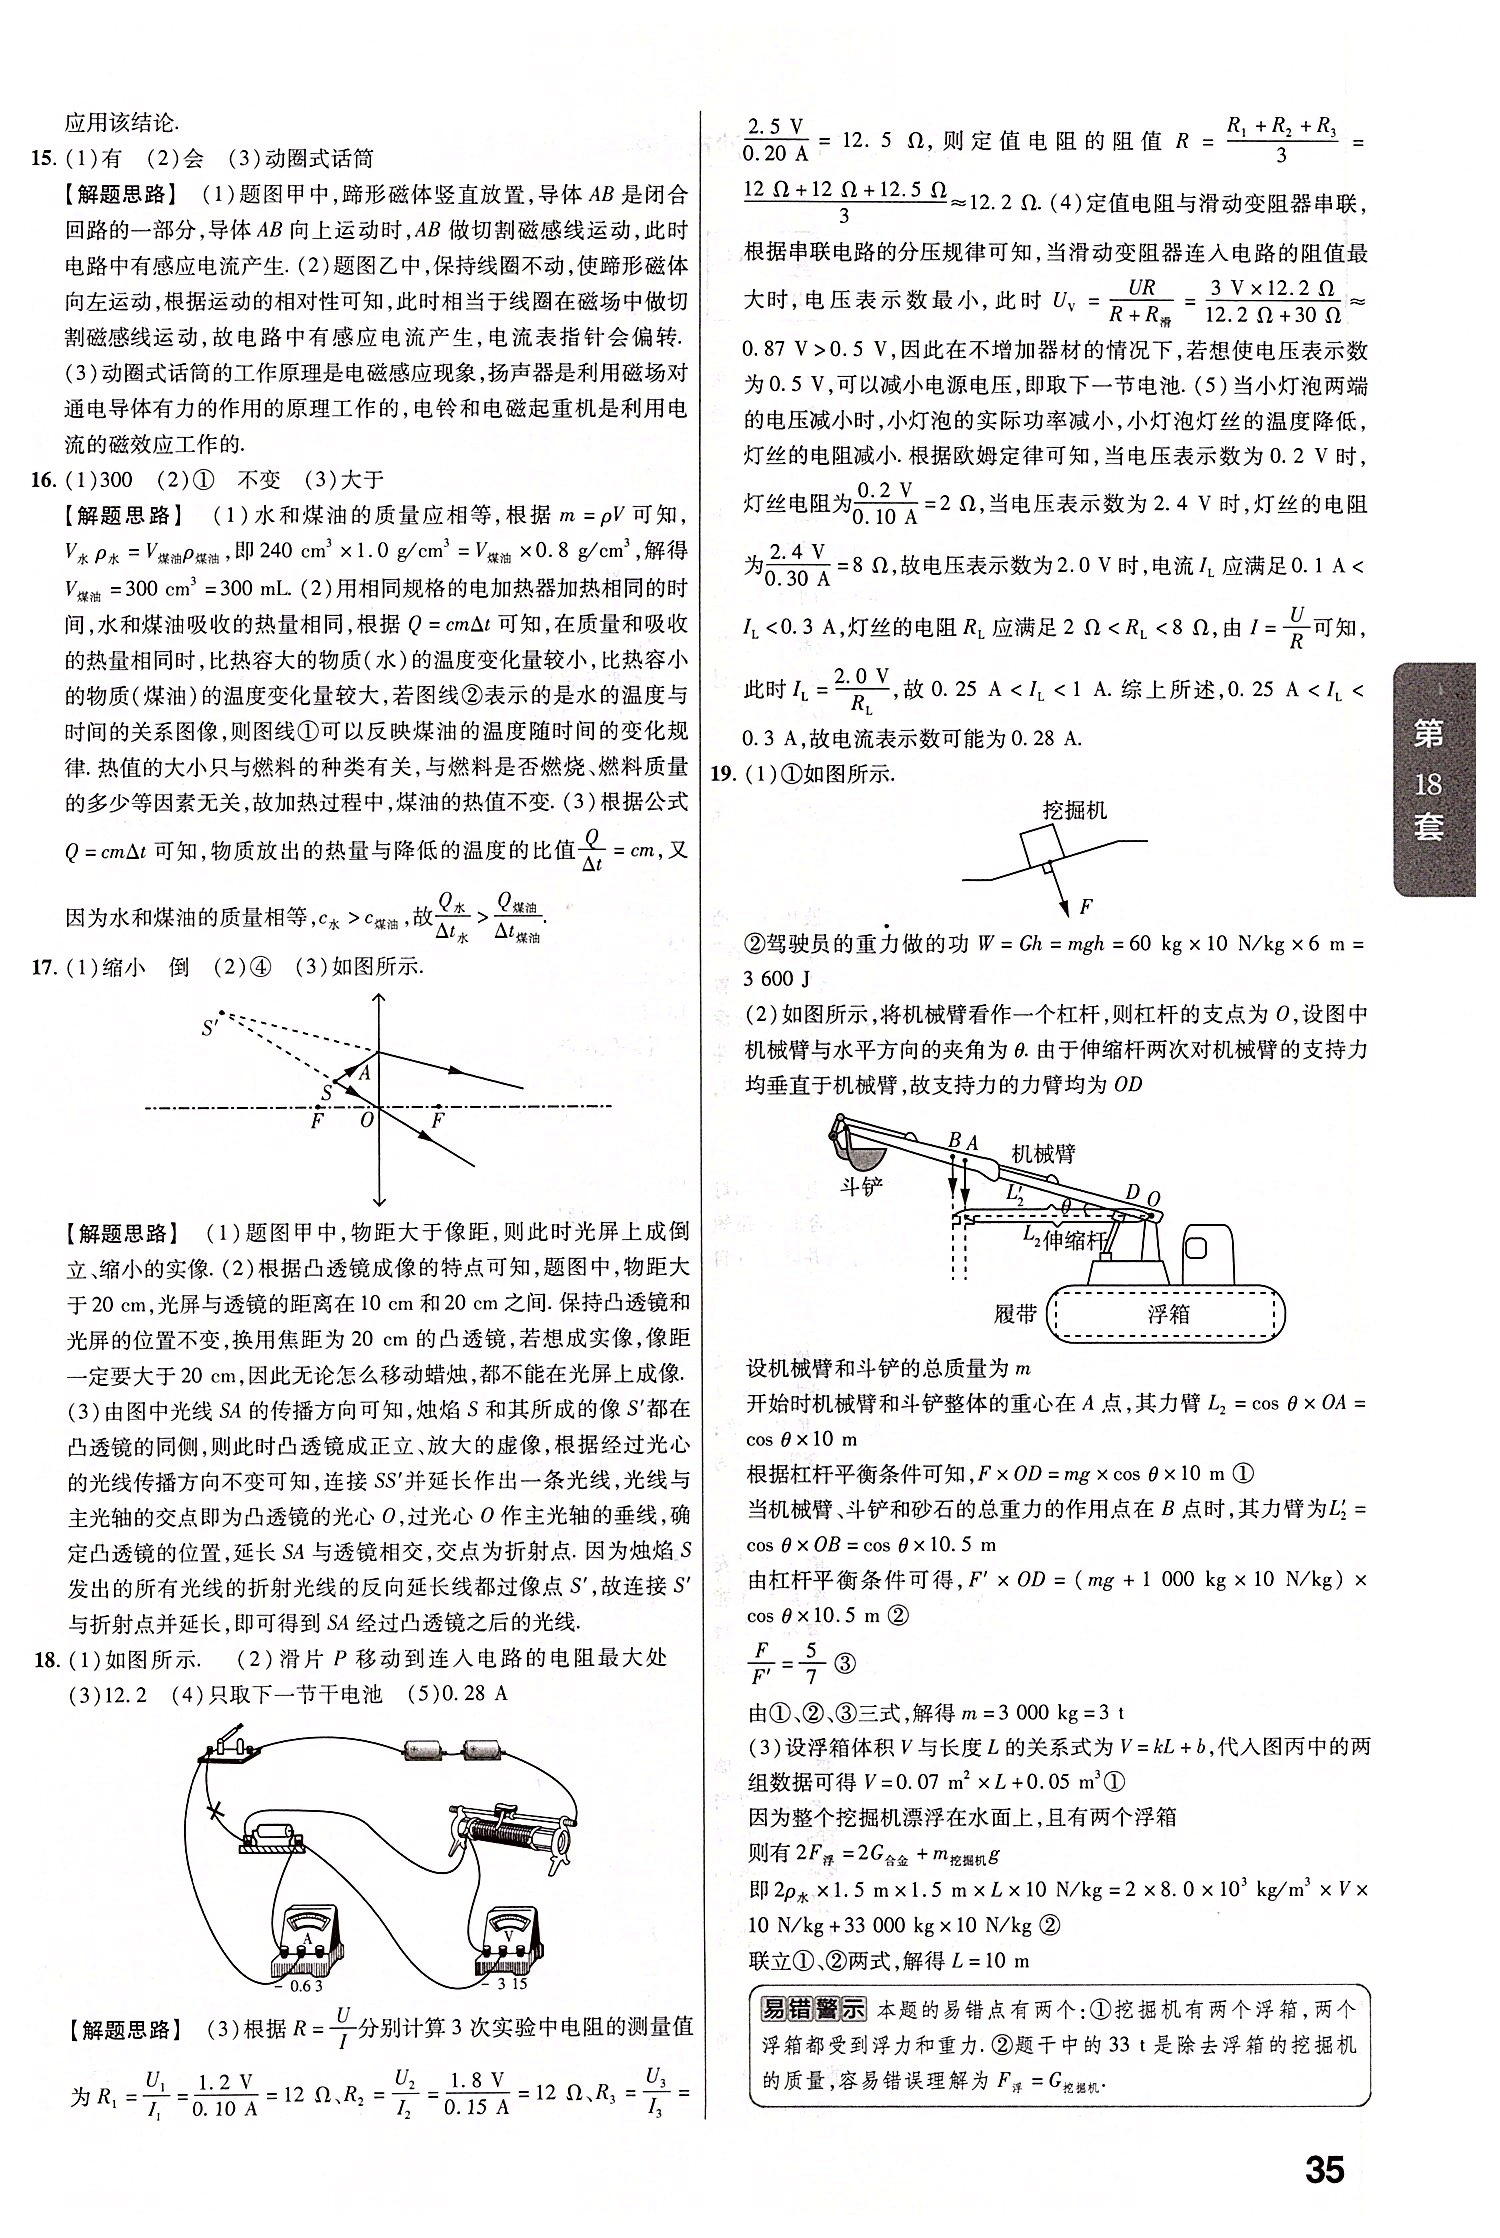 应用该结论.
15. (1)有　(2)会　(3)动圈式话筒
【解题思路】 (1)题图甲中,蹄形磁体竖直放置,导体 AB 是闭合
回路的一部分,导体 AB 向上运动时,AB 做切割磁感线运动,此时
电路中有感应电流产生. (2)题图乙中,保持线圈不动,使蹄形磁体
向左运动,根据运动的相对性可知,此时相当于线圈在磁场中做切
割磁感线运动,故电路中有感应电流产生,电流表指针会偏转.
(3)动圈式话筒的工作原理是电磁感应现象,扬声器是利用磁场对
通电导体有力的作用的原理工作的,电铃和电磁起重机是利用电
流的磁效应工作的.
16. (1)300　(2)①　不变　(3)大于
【解题思路】 (1)水和煤油的质量应相等,根据 m = ρV 可知,
V水 ρ水 = V煤油ρ煤油,即 240 cm³ × 1.0 g/cm³ = V煤油 × 0.8 g/cm³,解得
V煤油 = 300 cm³ = 300 mL. (2)用相同规格的电加热器加热相同的时
间,水和煤油吸收的热量相同,根据 Q = cmΔt 可知,在质量和吸收
的热量相同时,比热容大的物质(水)的温度变化量较小,比热容小
的物质(煤油)的温度变化量较大,若图线②表示的是水的温度与
时间的关系图像,则图线①可以反映煤油的温度随时间的变化规
律. 热值的大小只与燃料的种类有关,与燃料是否燃烧、燃料质量
的多少等因素无关,故加热过程中,煤油的热值不变. (3)根据公式
Q = cmΔt 可知,物质放出的热量与降低的温度的比值 Q/Δt = cm,又
因为水和煤油的质量相等,c水 > c煤油,故 Q水/Δt水 > Q煤油/Δt煤油.
17. (1)缩小　倒　(2)④　(3)如图所示.
S′
A
S
F O F
【解题思路】 (1)题图甲中,物距大于像距,则此时光屏上成倒
立、缩小的实像. (2)根据凸透镜成像的特点可知,题图中,物距大
于 20 cm,光屏与透镜的距离在 10 cm 和 20 cm 之间. 保持凸透镜和
光屏的位置不变,换用焦距为 20 cm 的凸透镜,若想成实像,像距
一定要大于 20 cm,因此无论怎么移动蜡烛,都不能在光屏上成像.
(3)由图中光线 SA 的传播方向可知,烛焰 S 和其所成的像 S′都在
凸透镜的同侧,则此时凸透镜成正立、放大的虚像,根据经过光心
的光线传播方向不变可知,连接 SS′并延长作出一条光线,光线与
主光轴的交点即为凸透镜的光心 O,过光心 O 作主光轴的垂线,确
定凸透镜的位置,延长 SA 与透镜相交,交点为折射点. 因为烛焰 S
发出的所有光线的折射光线的反向延长线都过像点 S′,故连接 S′
与折射点并延长,即可得到 SA 经过凸透镜之后的光线.
18. (1)如图所示.　(2)滑片 P 移动到连入电路的电阻最大处
(3)12.2　(4)只取下一节干电池　(5)0.28 A
A V
- 0.6 3 - 3 15
【解题思路】 (3)根据 R = U/I 分别计算 3 次实验中电阻的测量值
为 R₁ = U₁/I₁ = 1.2 V/0.10 A = 12 Ω、R₂ = U₂/I₂ = 1.8 V/0.15 A = 12 Ω、R₃ = U₃/I₃ =
2.5 V/0.20 A = 12.5 Ω,则定值电阻的阻值 R = (R₁ + R₂ + R₃)/3 =
(12 Ω + 12 Ω + 12.5 Ω)/3 ≈ 12.2 Ω. (4)定值电阻与滑动变阻器串联,
根据串联电路的分压规律可知,当滑动变阻器连入电路的阻值最
大时,电压表示数最小,此时 UV = UR/(R + R滑) = (3 V × 12.2 Ω)/(12.2 Ω + 30 Ω) ≈
0.87 V > 0.5 V,因此在不增加器材的情况下,若想使电压表示数
为 0.5 V,可以减小电源电压,即取下一节电池. (5)当小灯泡两端
的电压减小时,小灯泡的实际功率减小,小灯泡灯丝的温度降低,
灯丝的电阻减小. 根据欧姆定律可知,当电压表示数为 0.2 V 时,
灯丝电阻为 0.2 V/0.10 A = 2 Ω,当电压表示数为 2.4 V 时,灯丝的电阻
为 2.4 V/0.30 A = 8 Ω,故电压表示数为 2.0 V 时,电流 IL 应满足 0.1 A <
IL < 0.3 A,灯丝的电阻 RL 应满足 2 Ω < RL < 8 Ω,由 I = U/R 可知,
此时 IL = 2.0 V/RL,故 0.25 A < IL < 1 A. 综上所述,0.25 A < IL <
0.3 A,故电流表示数可能为 0.28 A.
19. (1)①如图所示.
挖掘机
F
②驾驶员的重力做的功 W = Gh = mgh = 60 kg × 10 N/kg × 6 m =
3 600 J
(2)如图所示,将机械臂看作一个杠杆,则杠杆的支点为 O,设图中
机械臂与水平方向的夹角为 θ. 由于伸缩杆两次对机械臂的支持力
均垂直于机械臂,故支持力的力臂均为 OD
B A 机械臂
斗铲 L₂′ θ D O
L₂ 伸缩杆
履带 浮箱
设机械臂和斗铲的总质量为 m
开始时机械臂和斗铲整体的重心在 A 点,其力臂 L₂ = cos θ × OA =
cos θ × 10 m
根据杠杆平衡条件可知,F × OD = mg × cos θ × 10 m ①
当机械臂、斗铲和砂石的总重力的作用点在 B 点时,其力臂为L₂′ =
cos θ × OB = cos θ × 10.5 m
由杠杆平衡条件可得,F′ × OD = (mg + 1 000 kg × 10 N/kg) ×
cos θ × 10.5 m ②
F/F′ = 5/7 ③
由①、②、③三式,解得 m = 3 000 kg = 3 t
(3)设浮箱体积 V 与长度 L 的关系式为 V = kL + b,代入图丙中的两
组数据可得 V = 0.07 m² × L + 0.05 m³①
因为整个挖掘机漂浮在水面上,且有两个浮箱
则有 2F浮 = 2G合金 + m挖掘机g
即 2ρ水 × 1.5 m × 1.5 m × L × 10 N/kg = 2 × 8.0 × 10³ kg/m³ × V ×
10 N/kg + 33 000 kg × 10 N/kg ②
联立①、②两式,解得 L = 10 m
易错警示 本题的易错点有两个:①挖掘机有两个浮箱,两个
浮箱都受到浮力和重力. ②题干中的 33 t 是除去浮箱的挖掘机
的质量,容易错误理解为 F浮 = G挖掘机.
第
18
套
35